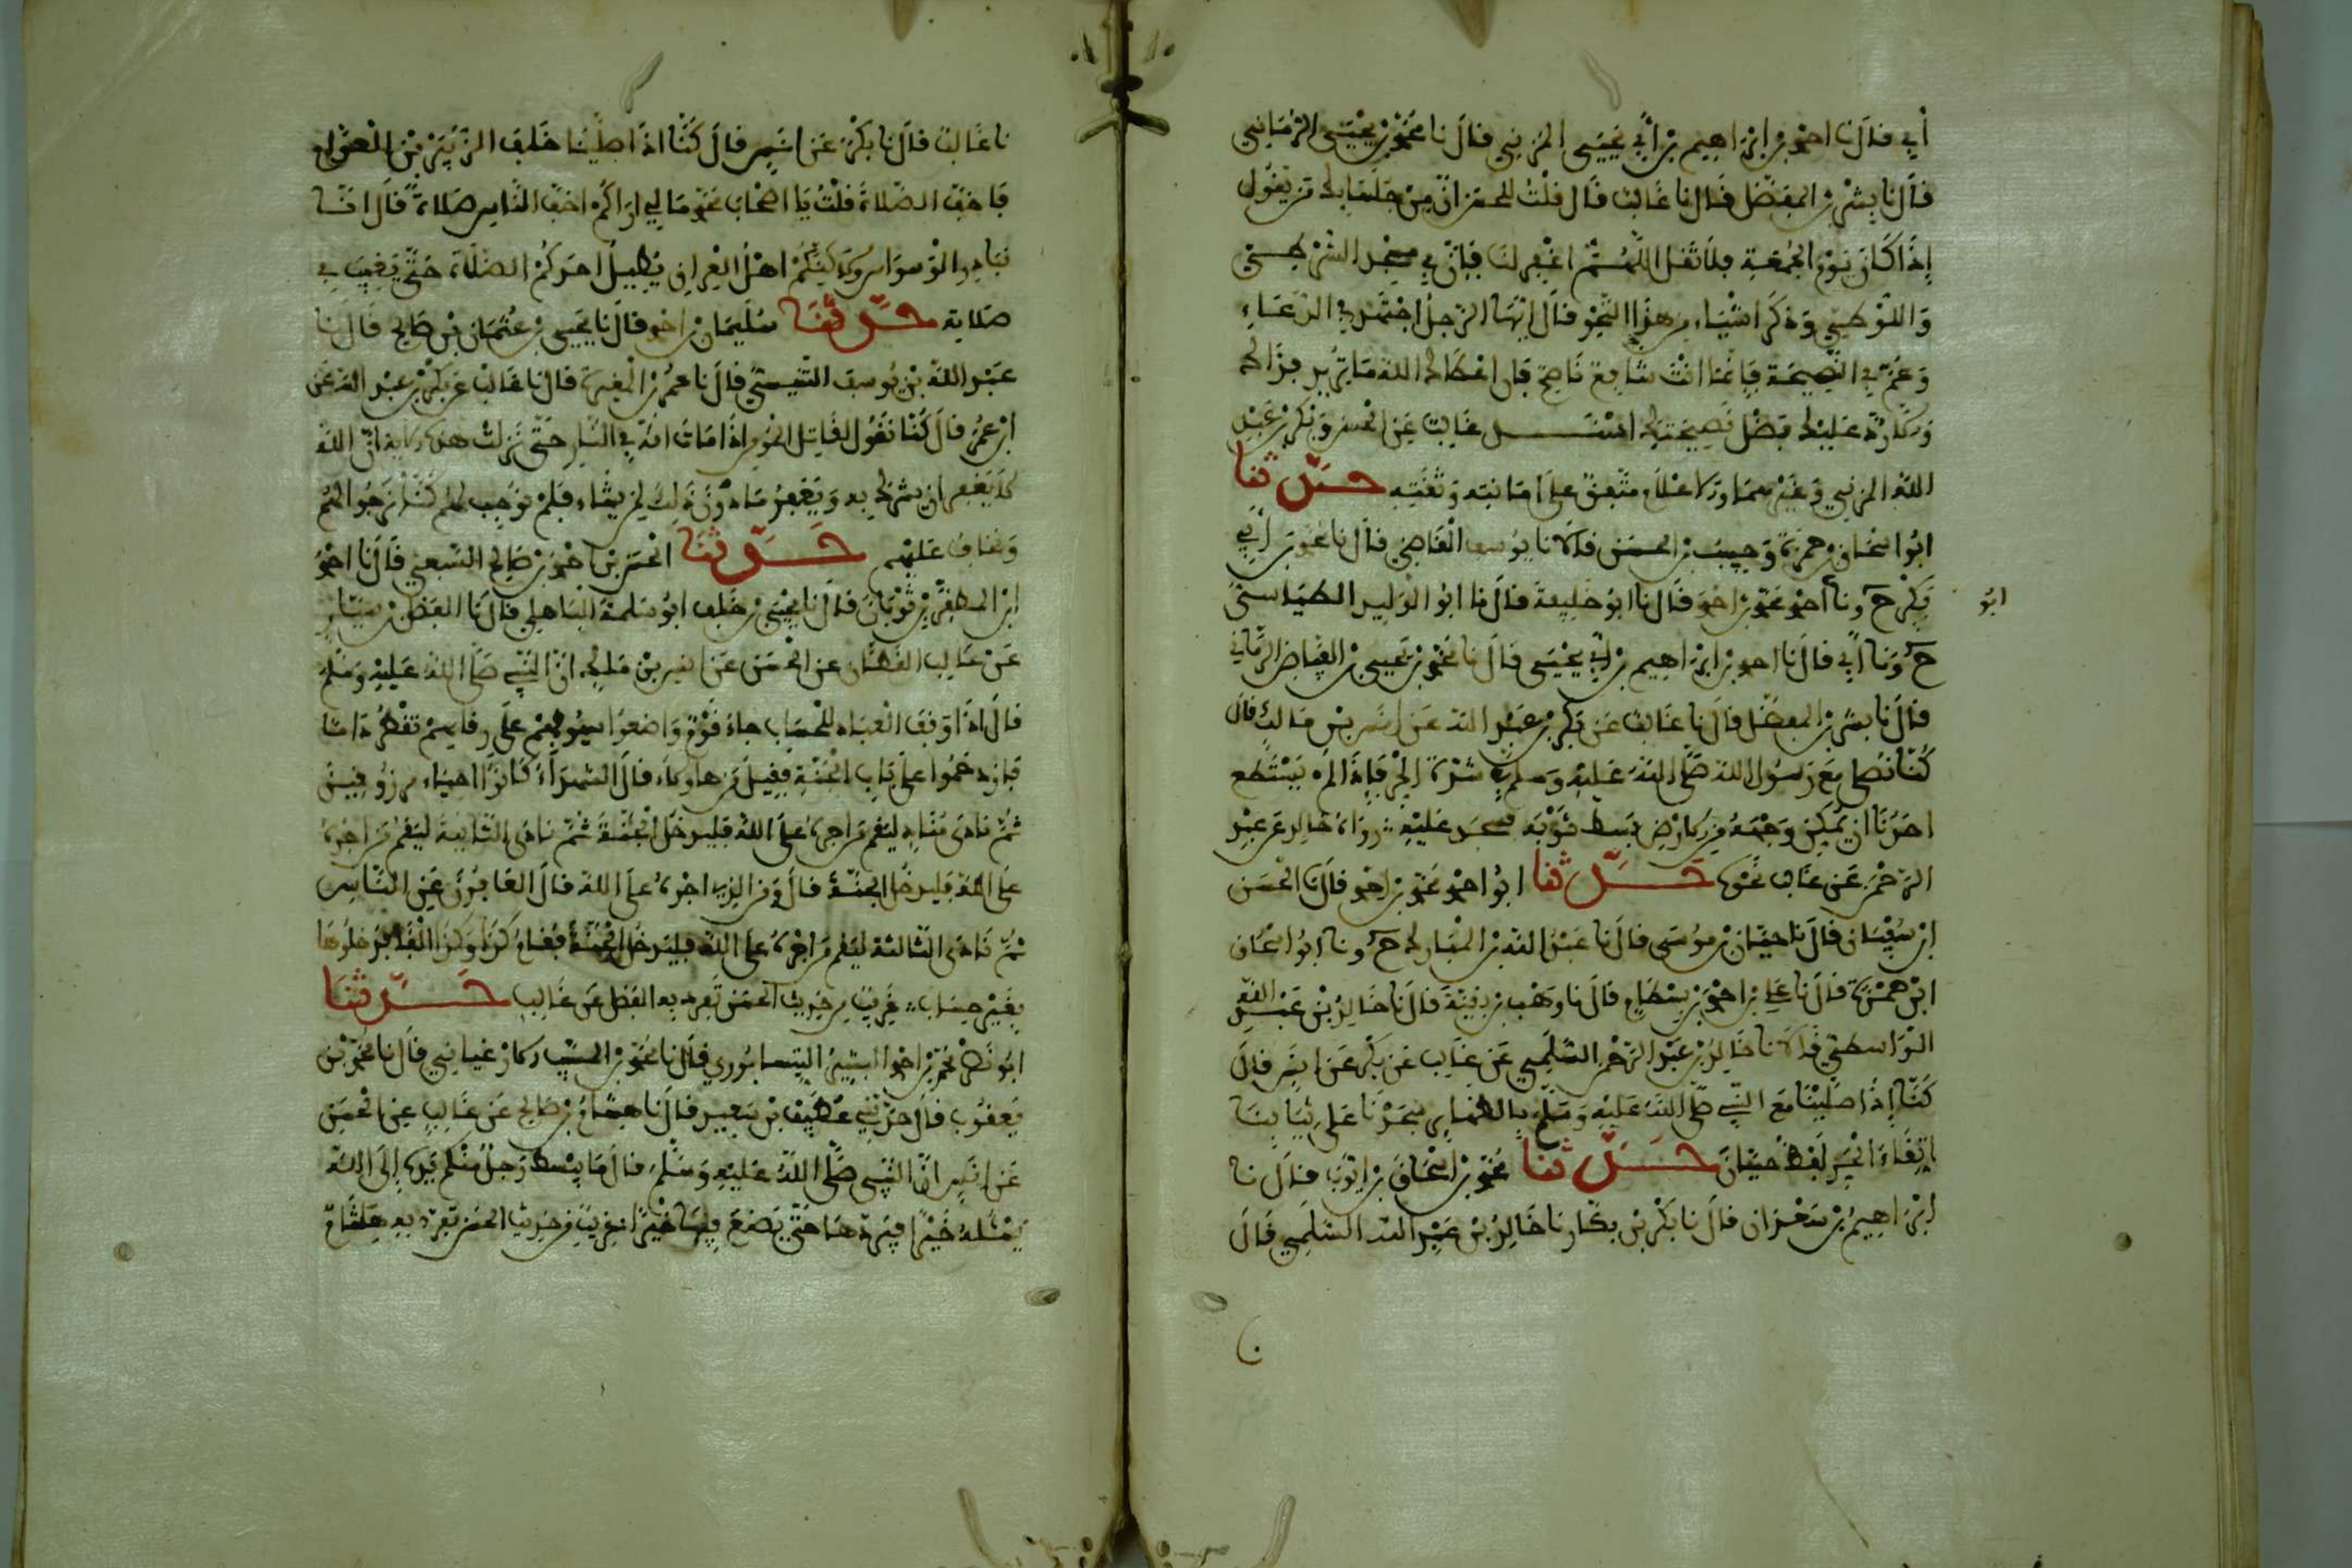 أبي قال نا احمد بن ابراهيم بن أبي يحيى المزني قال نا محمد بن يحيى الزماني
قال نا بشر بن المفضل قال نا غالب قال قلت للحسن ان من جلسايك من يقول
إذا كان يوم الجمعة فلا تقل اللهم اغفر لنا فإن في مسجد الشرطي
واللوطي وذكر اشياء من هذا النحو قال ايها الرجل اجتهد في الدعاء
وعم في النصيحة فإنما انت شافع ناصح فان اعطاك الله ما تريد فذاك
ورد عليك فضل نصيحتك اسند غالب عن الحسن وبكر بن عبد
الله المزني وغيرهما ورد الاعلام متفق على امانته وثقته حدثنا
ابو اسحاق بن حمزة وحبيب بن الحسن قالا نا يوسف القاضي قال نا محمد بن أبي
بكر ح ونا أحمد محمد بن احمد قال نا ابو خليفة قال نا ابو الوليد الطيالسي
ابو
ح ونا أبي قال نا احمد بن ابراهيم بن أبي يحيى قال نا محمد بن يحيى بن الفياض الزماني
قال نا بشر بن المفضل قال نا غالب عن بكر بن عبد الله عن انس بن مالك قال
كنا نصلي مع رسول الله صلى الله عليه وسلم في شدة الحر فإذا لم يستطع
احدنا ان يمكن وجهه من الارض بسط ثوبه فسجد عليه رواه خالد عن عبد
الرحمن عن غالب نحوه حدثنا ابو احمد محمد بن احمد قال نا الحسن
ابن سفيان قال نا حبان بن موسى قال نا عبد الله بن المبارك ح ونا ابو اسحاق
ابن حمزة قال نا علي بن احمد بن بسطام قال نا وهب بن بقية قال نا خالد بن عبد الله
الواسطي قالا نا خالد بن عبد الرحمن السلمي عن غالب عن بكر عن انس قال
كنا إذا صلينا مع النبي صلى الله عليه وسلم بالظهاير سجدنا على ثيابنا
اتقاء الحر لفظ حبان حدثنا محمد بن إسحاق بن ايوب قال نا
ابراهيم بن سعدان قال نا بكر بن بكار نا خالد بن عبد الله السلمي قال
نا غالب قال نا بكر عن انس قال كنا اذا صلينا خلف الزبير بن العوام
فاخف الصلاة قلت يا اصحاب محمد ما لي اراكم اخف الناس صلاة قال انا
نبادر الوسواس ولاكنكم اهل العراق يطيل احدكم الصلاة حتى يغيب في
صلاته حدثنا سليمان بن احمد قال نا يحيى بن عثمان بن صالح قال نا
عبد الله بن يوسف التنيسي قال نا عمر بن المغيرة قال نا غالب عن بكر بن عبد الله عن
ابن عمر قال كنا نقول لقاتل المومن اذا مات انه في النار حتى نزلت هذه الاية ان الله
لا يغفر ان يشرك به ويغفر ما دون ذلك لمن يشاء فلم نوجب لهم كنا نرجوا لهم
ونخاف عليهم حدثنا الحسن بن احمد بن صالح السبيعي قال نا احمد
ابن المظفر بن ثوبان قال نا يحيى بن خلف ابو سلمة الباهلي قال نا الفضل بن يسار
عن غالب القطان عن الحسن عن انس بن مالك ان النبي صلى الله عليه وسلم
قال اذا وقف العباد للحساب جاء قوم واضعوا سيوفهم على رقابهم تقطر دما
فازدحموا على باب الجنة فقيل من هاولاء قال الشهداء كانوا احياء مرزوقين
ثم نادى مناد ليقم من اجره على الله فليدخل الجنة ثم نادى الثانية ليقم من اجره
على الله فليدخل الجنة قال ومن الذي اجره على الله قال العافون عن الناس
ثم نادى الثالثة ليقم من اجره على الله فليدخل الجنة فقام كذا وكذا الفا فدخلوها
بغير حساب غريب من حديث الحسن تفرد به الفضل عن غالب حدثنا
ابو نصر محمد بن احمد النيسابوري قال نا محمد بن المسيب الارغياني قال نا محمد بن
يعقوب قال حدثني عطيف بن سعيد قال نا هشام بن صالح عن غالب عن الحسن
عن انس ان النبي صلى الله عليه وسلم قال ما يبسط رجل منكم يده إلى الله
يسئله خيرا فيردها حتى يضع فيها خيرا غريب من حديث الحسن تفرد به هشام